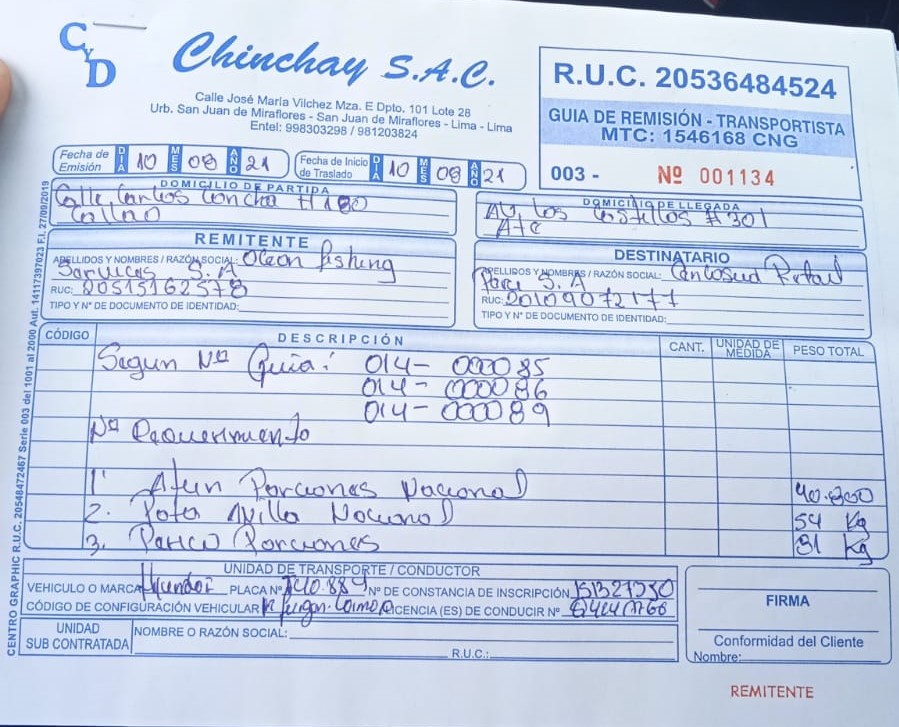 CyD
Chinchay S.A.C.
Calle José María Vilchez Mza. E Dpto. 101 Lote 28
Urb. San Juan de Miraflores - San Juan de Miraflores - Lima - Lima
Entel: 998303298 / 981203824
R.U.C. 20536484524
GUIA DE REMISIÓN - TRANSPORTISTA
MTC: 1546168 CNG
003 - Nº 001134
Fecha de Emisión DIA 10 MES 08 AÑO 21
Fecha de Inicio de Traslado DIA 10 MES 08 AÑO 21
DOMICILIO DE PARTIDA
Calle Carlos Concha #180
Callao
DOMICILIO DE LLEGADA
AV los Castillos #301
Ate
REMITENTE
APELLIDOS Y NOMBRES / RAZÓN SOCIAL: Ocean Fishing
Services S.A
RUC: 20515162578
TIPO Y Nº DE DOCUMENTO DE IDENTIDAD:
DESTINATARIO
APELLIDOS Y NOMBRES / RAZÓN SOCIAL: Cencosud Retail
Perú S.A
RUC: 20109072177
TIPO Y Nº DE DOCUMENTO DE IDENTIDAD:
CÓDIGO DESCRIPCIÓN CANT. UNIDAD DE MEDIDA PESO TOTAL
Segun Nº Guia: 014- 000085
014- 000086
014- 000089
Nº Requerimiento
1. Atun Porciones Nacional
2. Pota Anilla Nacional 54 Kg
3. Perico Porciones 81 Kg
UNIDAD DE TRANSPORTE / CONDUCTOR
VEHICULO O MARCA Hyundai PLACA Nº Nº DE CONSTANCIA DE INSCRIPCIÓN
CÓDIGO DE CONFIGURACIÓN VEHICULAR LICENCIA (ES) DE CONDUCIR Nº
UNIDAD SUB CONTRATADA
NOMBRE O RAZÓN SOCIAL:
R.U.C.:
FIRMA
Conformidad del Cliente
Nombre:
REMITENTE
CENTRO GRAPHIC R.U.C. 20548472467 Serie 003 del 1001 al 2000 Aut. 14117397023 F.I. 27/09/2019